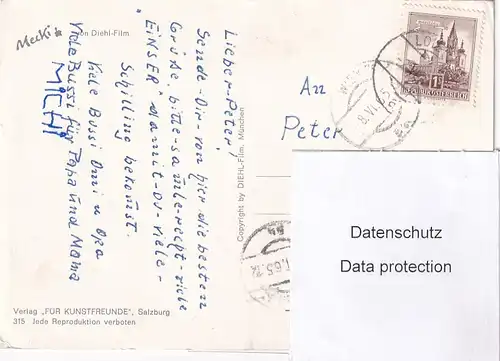 Mecki
von Diehl-Film
Lieber Peter!
Sende-Dir-von hier die besten
Grüße, bitte-samle-recht-viele
"EINSER" damit-Du-viele-
Schilling bekomst.
Viele Bussi Omi u Opa
Viele Bussi für Papa und Mama
MICHI
Copyright by DIEHL-Film, München
An
Peter
REPUBLIK ÖSTERREICH
Datenschutz
Data protection
Verlag „FÜR KUNSTFREUNDE", Salzburg
315 Jede Reproduktion verboten